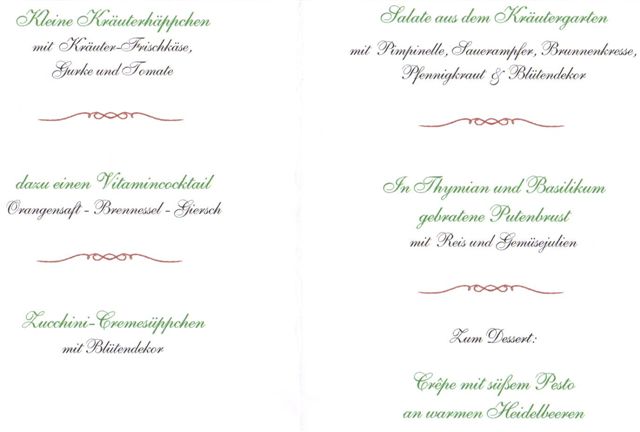 Kleine Kräuterhäppchen
mit Kräuter-Frischkäse,
Gurke und Tomate
dazu einen Vitamincocktail
Orangensaft - Brennessel - Giersch
Zucchini-Cremesüppchen
mit Blütendekor
Salate aus dem Kräutergarten
mit Pimpinelle, Sauerampfer, Brunnenkresse,
Pfennigkraut & Blütendekor
In Thymian und Basilikum
gebratene Putenbrust
mit Reis und Gemüsejulien
Zum Dessert:
Crêpe mit süßem Pesto
an warmen Heidelbeeren